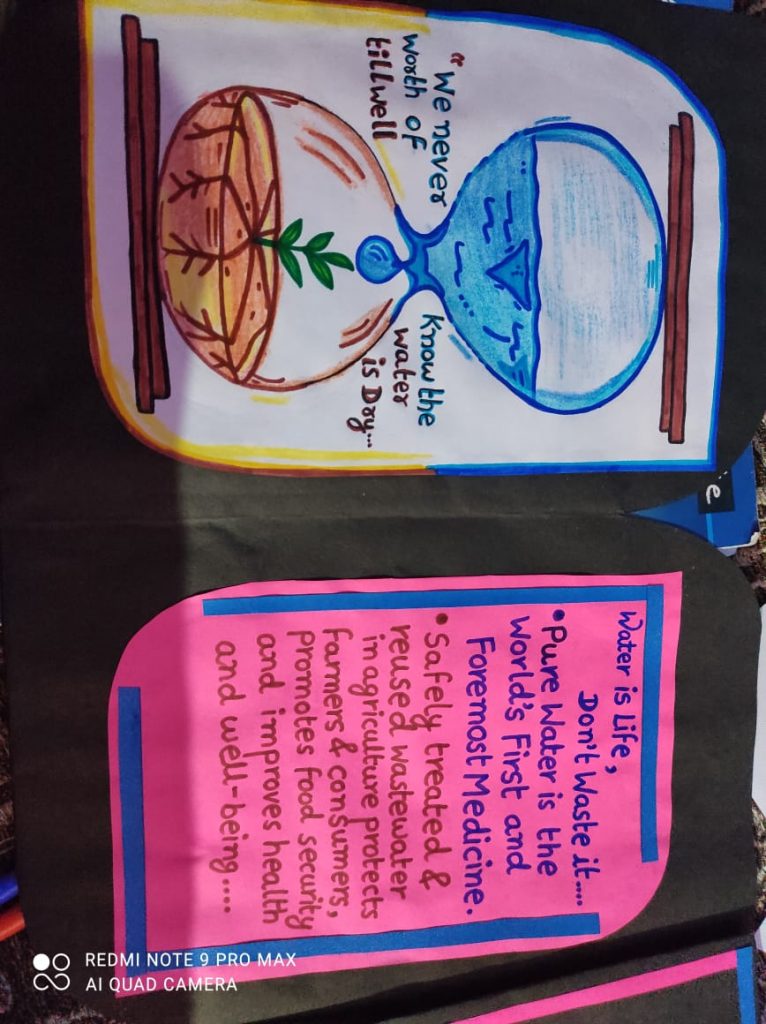 “We never
worth of
tillwell
Know the
water
is Dry...
Water is Life,
Don't Waste it....
• Pure Water is the
World's First and
Foremost Medicine.
• Safely treated &
reused wastewater
in agriculture protects
farmers & consumers,
promotes food security
and improves health
and well-being....
e
REDMI NOTE 9 PRO MAX
AI QUAD CAMERA